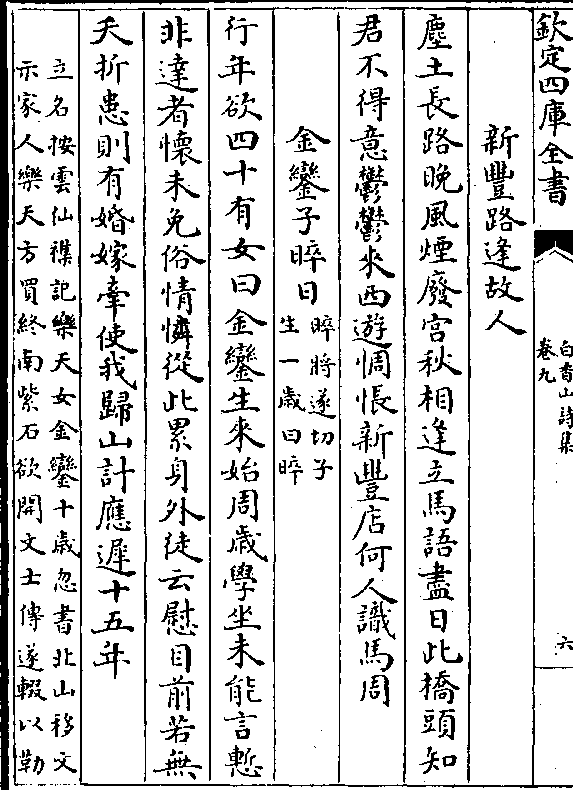 欽定四庫全書
白香山詩集
卷九
六
新豐路逢故人
塵土長路晚風煙廢宮秋相逢立馬語盡日此橋頭知
君不得意鬱鬱來西遊惆悵新豐店何人識馬周
金鑾子晬日
晬將遂切子
生一歲曰晬
行年欲四十有女曰金鑾生來始周歲學坐未能言慙
非達者懷未免俗情憐從此累身外徒云慰目前若無
夭折患則有婚嫁牽使我歸山計應遲十五年
立名按雲仙襍記樂天女金鑾十歲忽書北山移文
示家人樂天方買終南紫石欲開文士傳遂輟以勒